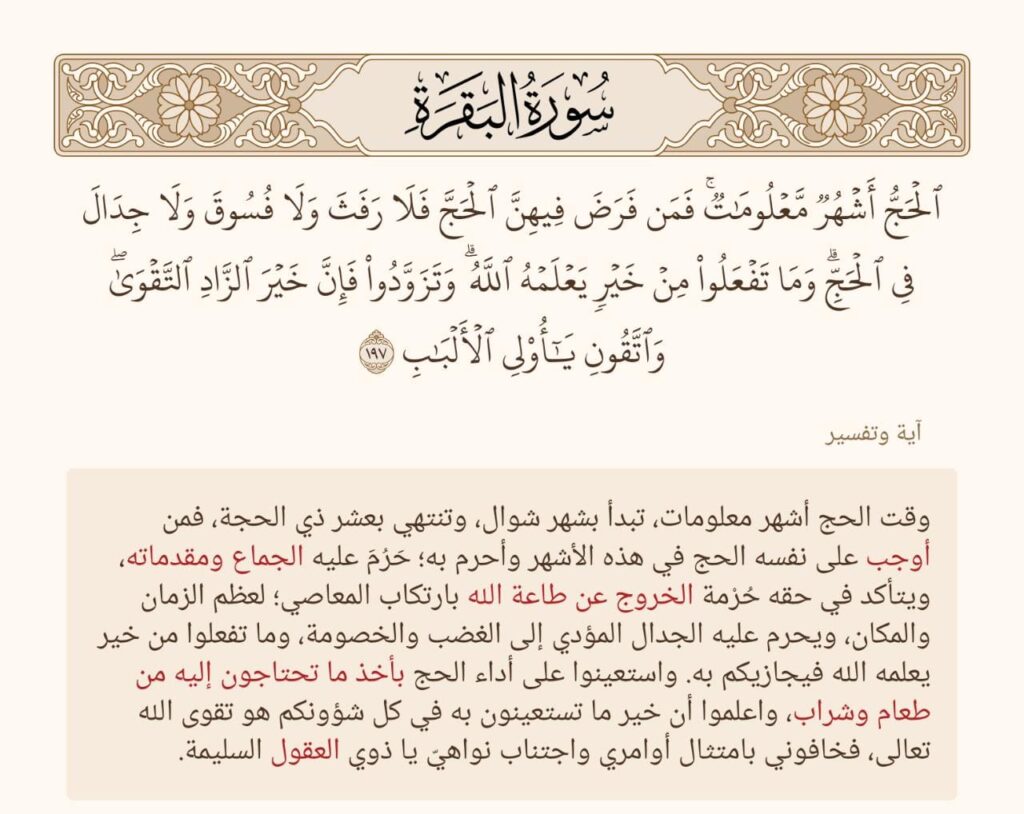 سُورَةُ البَقَرَةِ
ٱلۡحَجُّ أَشۡهُرٞ مَّعۡلُومَٰتٞۚ فَمَن فَرَضَ فِيهِنَّ ٱلۡحَجَّ فَلَا رَفَثَ وَلَا فُسُوقَ وَلَا جِدَالَ
فِي ٱلۡحَجِّۗ وَمَا تَفۡعَلُواْ مِنۡ خَيۡرٖ يَعۡلَمۡهُ ٱللَّهُۗ وَتَزَوَّدُواْ فَإِنَّ خَيۡرَ ٱلزَّادِ ٱلتَّقۡوَىٰۖ
وَٱتَّقُونِ يَٰٓأُوْلِي ٱلۡأَلۡبَٰبِ ١٩٧
آية وتفسير
وقت الحج أشهر معلومات، تبدأ بشهر شوال، وتنتهي بعشر ذي الحجة، فمن
أوجب على نفسه الحج في هذه الأشهر وأحرم به؛ حَرُمَ عليه الجماع ومقدماته،
ويتأكد في حقه حُرْمة الخروج عن طاعة الله بارتكاب المعاصي؛ لعظم الزمان
والمكان، ويحرم عليه الجدال المؤدي إلى الغضب والخصومة، وما تفعلوا من خير
يعلمه الله فيجازيكم به. واستعينوا على أداء الحج بأخذ ما تحتاجون إليه من
طعام وشراب، واعلموا أن خير ما تستعينون به في كل شؤونكم هو تقوى الله
تعالى، فخافوني بامتثال أوامري واجتناب نواهيّ يا ذوي العقول السليمة.